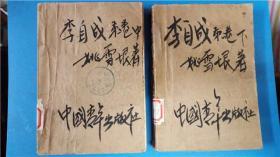 李自成 第二卷 中
姚雪垠著
中國青年出版社
李自成 第二卷 下
姚雪垠著
中國青年出版社